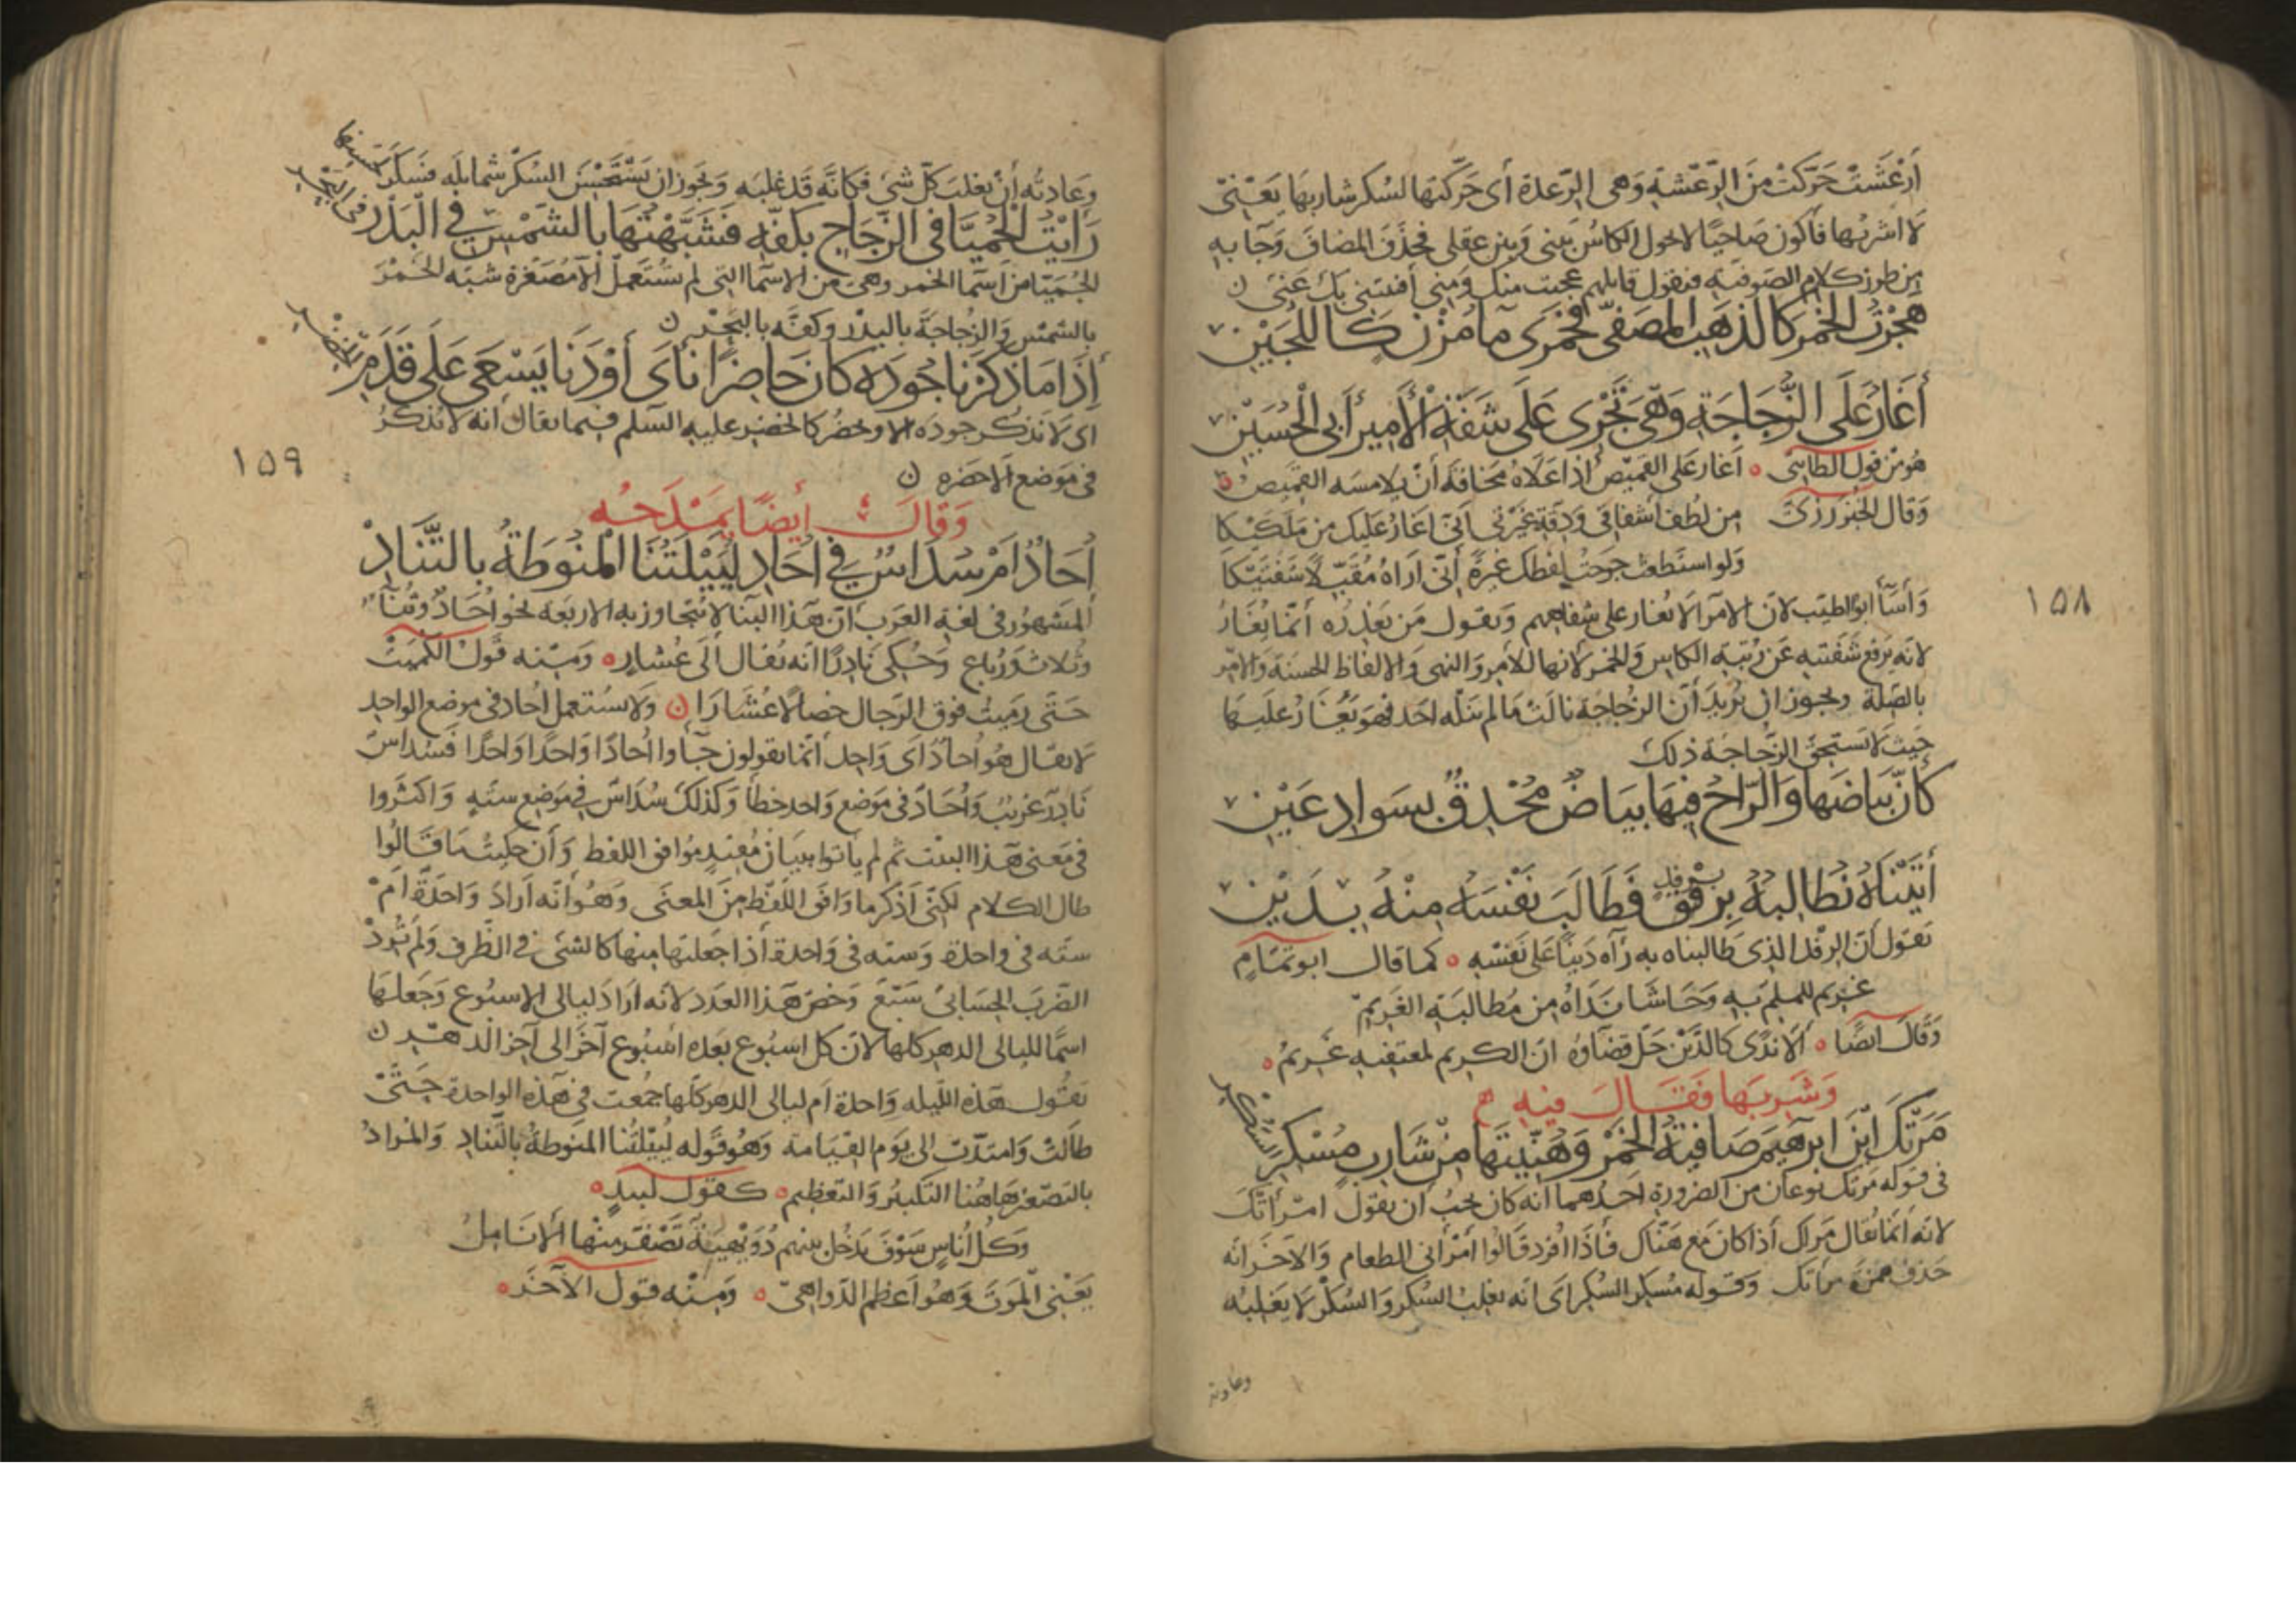 أرعَشَتْ حَرَّكَتْ مِنَ الرَّعْشَةِ وَهى الرِّعدة أى حَرَّكتها لسُكر شاربها يَعْنِى
لا اشربُها فأكون صَاحيًا لا تحول الكاسُ بينى وَبين عقلى فحذَفَ المضافَ وَجآ به
من طرز كلام الصوفية فيقول قايلهم عجبت منك وَمِنى أفنيتنى بك عَنّى ن
هَجَرْتُ الْخَمْرَ كَالذَهَبِ المُصَفّى فَخَمْرِى مآ مُزْنٍ كَاللُّجَيْنِ
أَغَارُ عَلَى الزُّجَاجَةِ وَهْىَ تَجْرِى عَلَى شَفَةِ الْأَمِيرِ أَبى الْحُسَيْنِ
هُوَ مِنْ قول الطآئى ٥ اَغار على القميص اذا عَلاهُ مَخافةَ أنْ يلامسَه القميصُ ٥
وَقال الخُبْزرُزىّ من لُطف اشفاقى وَدِقّةِ غَيْرتى اَنّى اَغارُ عَليكَ من مَلَكَيْكا
وَلو استطعتُ جرحتُ لفظك غيرةً أنّى اَراهُ مُقَبّلاً شفَتَيْكا
وَأسَآ أبو الطيّب لان الامرآ لا يُغار على شفاههم وَيقول مَن يعْذِرُه أنّما يُغارُ
لانه يرفع شفتيه عَن رُتبَة الكاس وَالخمر لانها للأمر وَالنهى وَالالفاظ الحسنة وَالامر
بالصّلة ويجوز ان يُريدَ أنّ الزُجاجة نالت مَا لم ينَله احَد فهو يَغَارُ عليها
حَيث لا تستحق الزُّجاجَة ذلك
كَأَنَّ بَيَاضَهَا وَالرَّاحُ فِيهَا بَيَاضٌ مُحْدِقٌ بِسَوَادِ عَيْنِ
أَتَيْنَاهُ نُطَالِبُهُ بِرِفْقٍ فَطَالَبَ نَفْسَهُ مِنْهُ بِدَيْنِ
بِرِفْدٍ
يَقول أنّ الرِفْدَ الذى طَالبناه به رَآه دَينًا عَلى نَفسه ٥ كما قال ابو تمّامٍ
غريم للملمِّ بهِ وَحَاشَا نَدَاهُ مِن مُطالبَةِ الغَريمِ
وَقال ايضًا ٥ اَلا نَدًى كالدَّيْنِ حَلَّ قضآوُه انّ الكريم لمعتفيه غريمُ ٥
وَشَرِبَها فَقَالَ فيهِ
مَرَتْكَ ابْنَ ابرهيمَ صَافِيَةُ الْخَمْرِ وَهُنِّيتَها مِنْ شَارِبٍ مُسْكِرِ السُّكْرِ
فى قوله مَرَتك نوعان من الضرورة احَدُهما انه كان يجبُ ان يقول امْرأتْكَ
لانه أنّما يُقال مَراك اذا كان مَع هَنَاك فَاذا افرد قالوا اَمْرَأنى الطعام وَالاخَر انه
حَذفَ همزة مرأتك وَقوله مُسكر السُكر اَى انه يغلبُ السُكر وَالسُكْرُ لا يَغلِبُه
وعادته
١٥٨
وَعَادتُه أنْ يغلبَ كلّ شئ فكانّه قَد غلبَه وَيجوز ان يَسْتَحْسِنَ السُكْرُ شمَايلَه فسَكِرَ لحسنها
رَأَيْتُ الْحُمَيَّا فى الزُّجَاجِ بِكَفِّهِ فَشَبَّهْتُهَا بِالشَّمْسِ فى الْبَدْرِ فى الْبَحْرِ
الحُمَيّا من اَسمآ الخمر وهى من الاسمآ التى لم تُستَعملْ الا مُصَغّرة شبّه الخَمْرَ
بالشمْسِ وَالزُجاجَةَ بالبدْرِ وكفّه بالبَحْرِ ن
إِذَا مَا ذَكَرْنَا جُودَهُ كَانَ حَاضِرًا نَأَى أَوْ دَنَا يَسْعَى عَلَى قَدَمِ الْخِضْرِ
اى لا نَذكر جودَه الا وحضر كالخضر عليه السّلم فيما يقال انه لا يُذكرُ
فى مَوضع الا حَضره ن
وَقَالَ أَيضًا يَمْدَحُه
أُحَادٌ اَمْ سُدَاسٌ فى اُحَادِ لُيَيْلَتُنَا الْمَنُوطَةُ بِالتَّنَادِ
المشهُور فى لغة العَرب انّ هَذا البنا لا يُتجاوز به الاربعَة نحو اُحَادَ وثُنآ
وثُلاث وَرُباع وَحُكى نَادِرًا انه يُقال الَى عُشار ٥ وَمنه قَولُ الكُمَيت
حَتّى رَمَيتُ فوق الرّجال خصَالاً عُشَارَا ن وَلا يستعمل اُحاد فى موضع الواحِد
لا يقال هُو اُحادُ اَى وَاحِد انما يقولون جآوا اُحادًا وَاحدًا وَاحدًا فسُداسٌ
نَادِر غريب وَاُحَادٌ فى مَوضع وَاحد خطأ وَكذلك سُدَاسٌ فى مَوضع ستّةٍ وَاكثَروا
فى مَعنى هذا البيت ثم لم ياتوا ببيَان مُفيدٍ مُوافق اللفظ وَأن حكيتُ مَا قَالُوا
طال الكلام لكنّى أذكر ما وَافق اللّفظ مِنَ المعنَى وَهُو أنّه اَرادَ وَاحدَةٌ اَمْ
ستّه فى واحدة وَستّه فى وَاحدة أذا جعَلتَها منها كالشئ فى الظّرف وَلَم يُرِدْ
الضّربَ الحِسَابىّ سَبْعٌ وَخَصّ هَذا العَدَد لانه اَرَادَ لَيالى الاسبُوع وَجَعلَها
اسمًا لليالى الدهر كلها لانّ كل اسبُوع بَعْده اُسْبُوع آخَرَ الى آخر الدهر ن
يَقُول هَذه اللّيله وَاحدة اَم ليالى الدهر كلّها جُمعت فى هَذه الواحدة حَتّى
طَالتْ وَامتَدّتْ الى يَوْم القيَامة وَهُو قَوله لُيَيْلَتُنا المنَوطةُ بالتّنادِ وَالمُرادُ
بالتصّغير هَاهُنا التكبيرُ وَالتّعظيم ٥ كقول لبيدٍ ٥
وَكلُّ اُنَاسٍ سَوْفَ يَدْخُلُ بينهم دُوَيْهِيَةٌ تَصْفَرُّ مِنْها الْأنَامِلُ
يَعْنِى الْمَوتَ وَهُو اَعظم الدّواهىّ ٥ وَمِنْه قَول الآخَر ٥
١٥٩